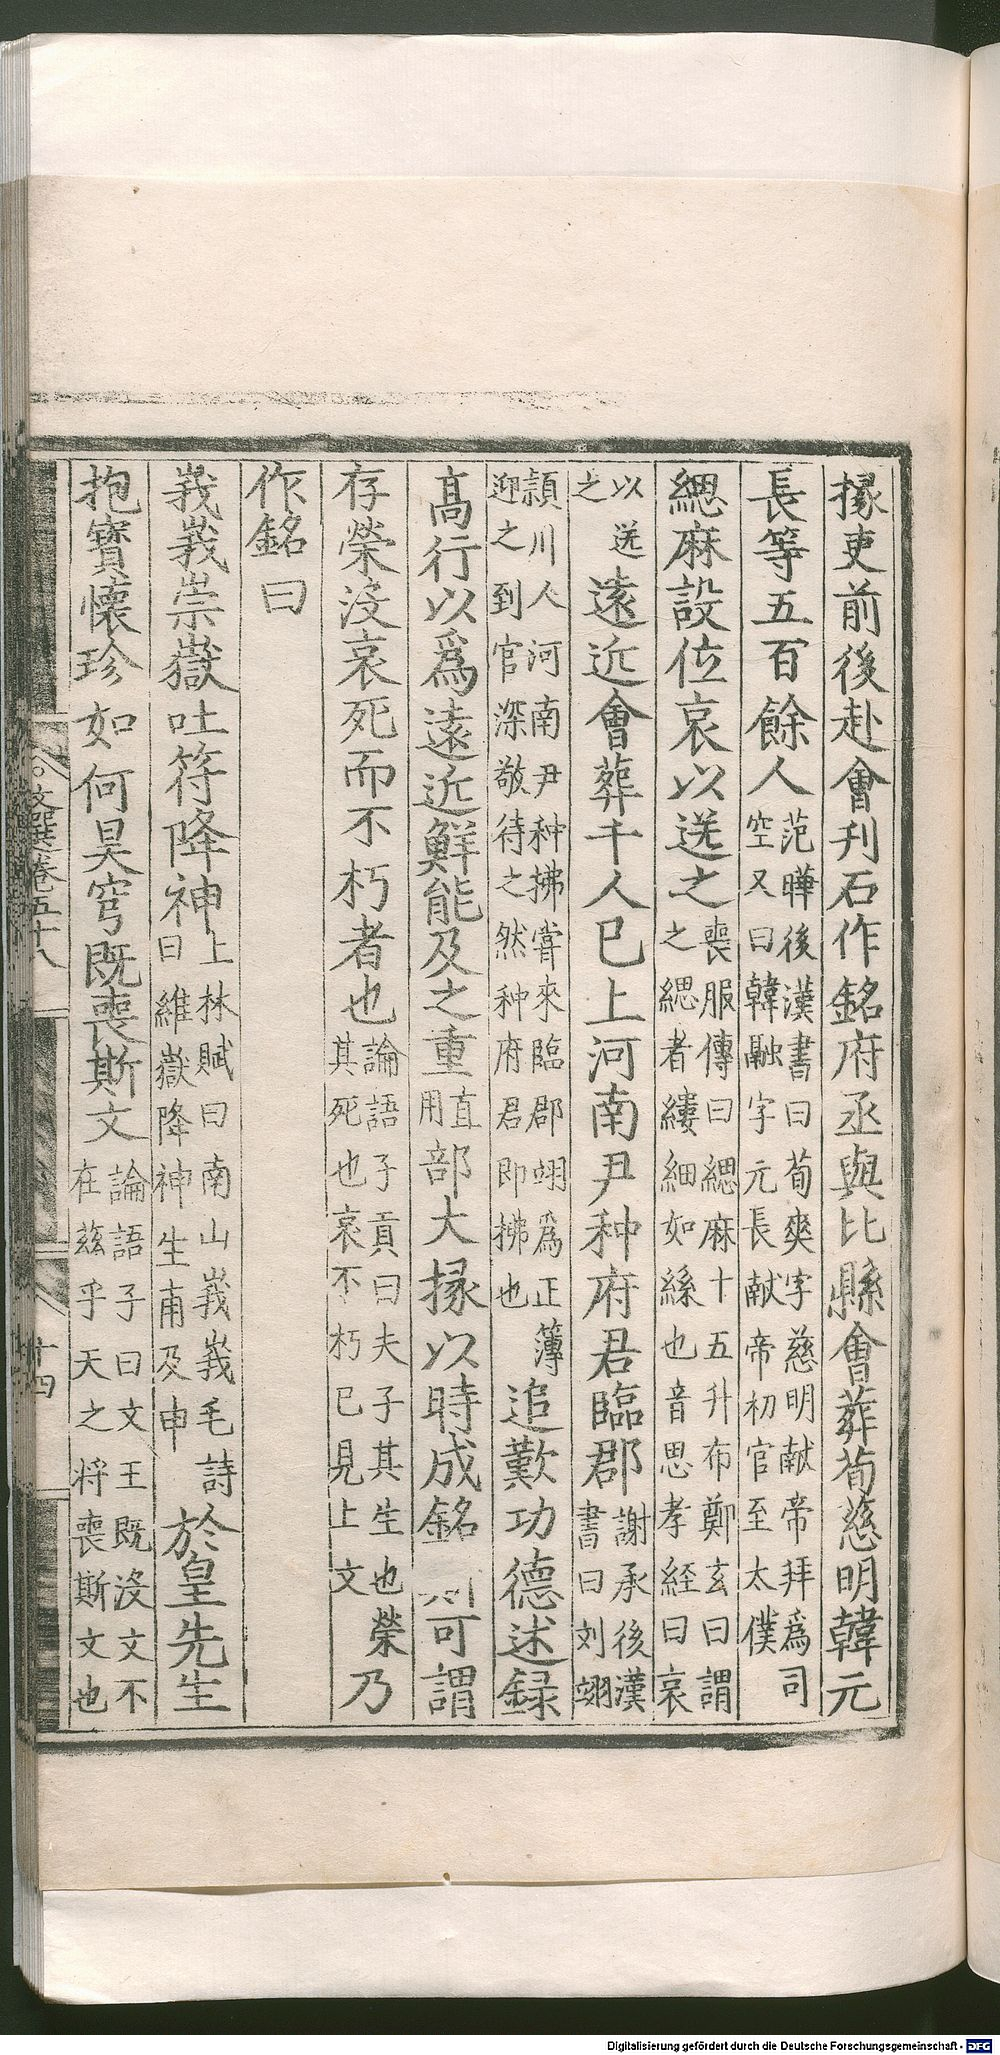 掾吏前後赴會刋石作銘府丞與比縣會葬荀慈明韓元
長等五百餘人范曄後漢書曰荀爽字慈明献帝拜爲司空又曰韓融字元長献帝初官至太僕
緦麻設位哀以送之喪服傳曰緦麻十五升布鄭玄曰謂之緦者縷細如絲也音思孝経曰哀
以送之遠近會葬千人巳上河南尹种府君臨郡謝承後漢書曰刘翊
潁川人河南尹种拂甞來臨郡翊爲正簿迎之到官深敬待之然种府君即拂也追歎功德述録
髙行以爲遠近鮮能及之重直用部大掾以時成銘可謂
存榮没哀死而不朽者也論語子貢曰夫子其生也榮其死也哀不朽巳見上文乃
作銘曰
峩峩崇嶽吐符降神上林賦曰南山峩峩毛詩曰維嶽降神生甫及申於皇先生
抱寳懐珍如何昊穹既喪斯文論語子曰文王既没文不在兹乎天之将喪斯文也
文選巻五十八
十四
Digitalisierung gefördert durch die Deutsche Forschungsgemeinschaft - DFG